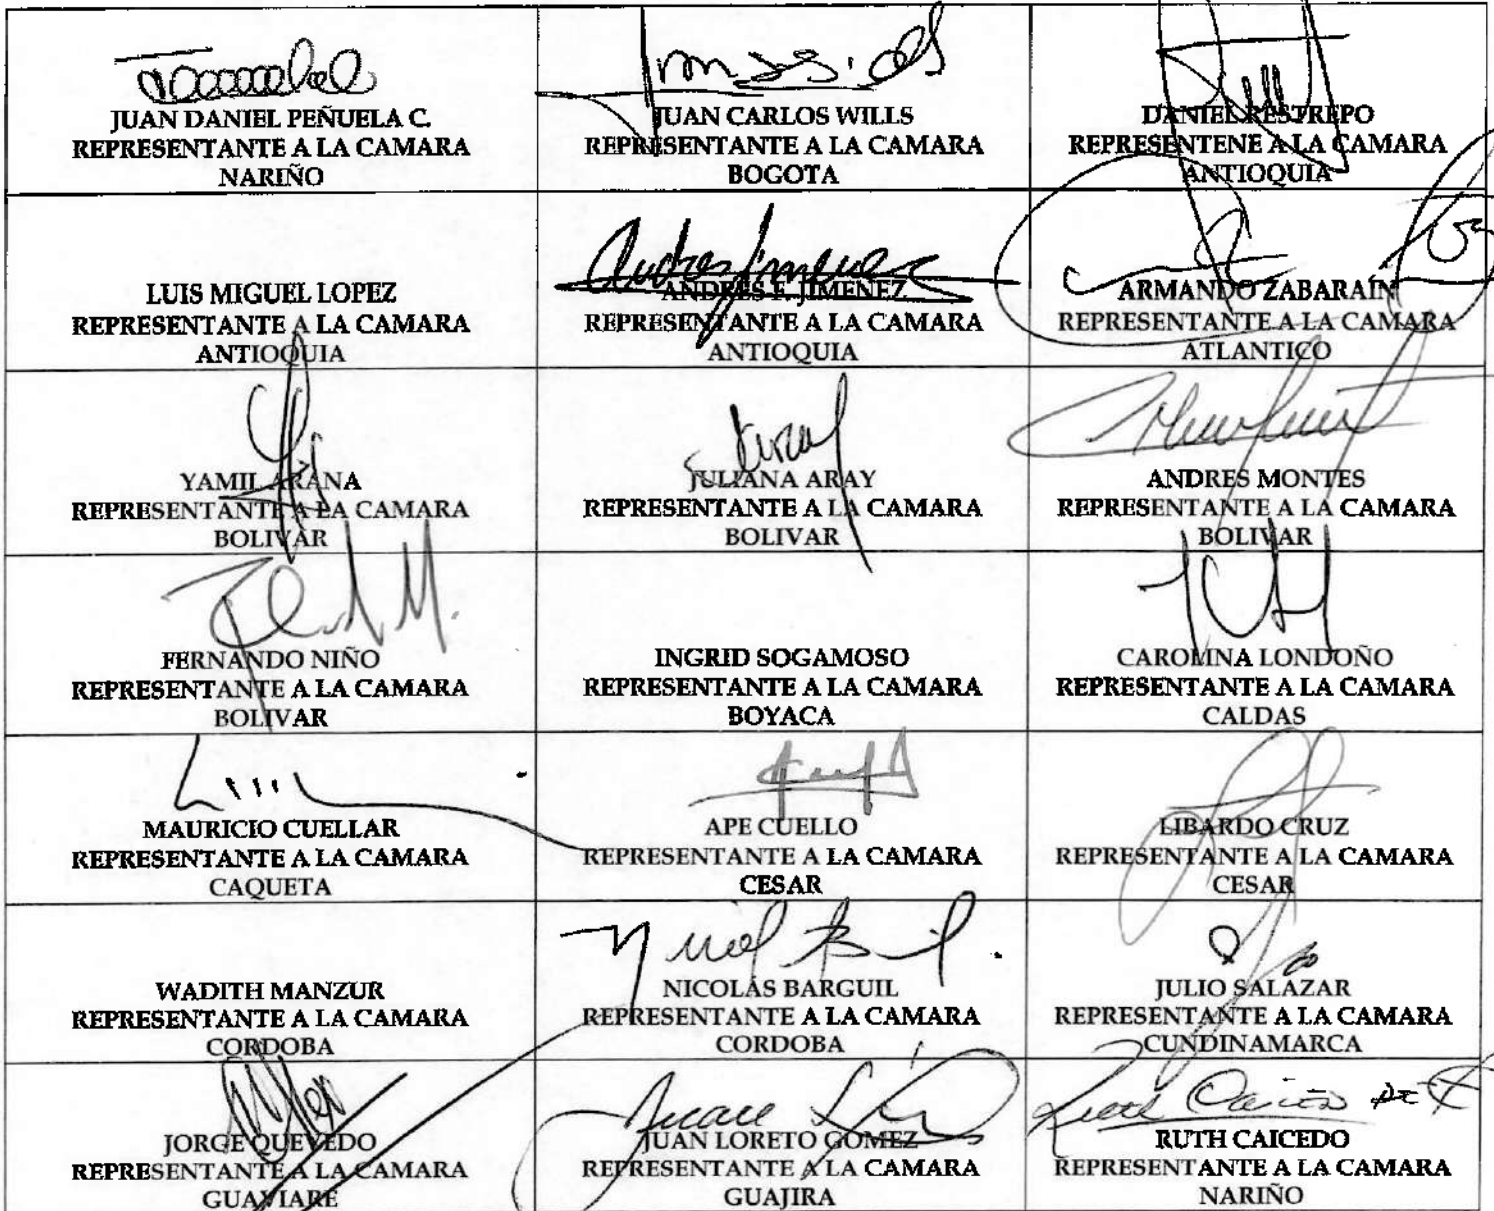 JUAN DANIEL PEÑUELA C.
REPRESENTANTE A LA CAMARA
NARIÑO
JUAN CARLOS WILLS
REPRESENTANTE A LA CAMARA
BOGOTA
DANIEL RESTREPO
REPRESENTENE A LA CAMARA
ANTIOQUIA
LUIS MIGUEL LOPEZ
REPRESENTANTE A LA CAMARA
ANTIOQUIA
Andres Jimenez
ANDRES F. JIMENEZ
REPRESENTANTE A LA CAMARA
ANTIOQUIA
ARMANDO ZABARAÍN
REPRESENTANTE A LA CAMARA
ATLANTICO
YAMIL ARANA
REPRESENTANTE A LA CAMARA
BOLIVAR
JULIANA ARAY
REPRESENTANTE A LA CAMARA
BOLIVAR
ANDRES MONTES
REPRESENTANTE A LA CAMARA
BOLIVAR
FERNANDO NIÑO
REPRESENTANTE A LA CAMARA
BOLIVAR
INGRID SOGAMOSO
REPRESENTANTE A LA CAMARA
BOYACA
CAROLINA LONDOÑO
REPRESENTANTE A LA CAMARA
CALDAS
MAURICIO CUELLAR
REPRESENTANTE A LA CAMARA
CAQUETA
APE CUELLO
REPRESENTANTE A LA CAMARA
CESAR
LIBARDO CRUZ
REPRESENTANTE A LA CAMARA
CESAR
WADITH MANZUR
REPRESENTANTE A LA CAMARA
CORDOBA
NICOLÁS BARGUIL
REPRESENTANTE A LA CAMARA
CORDOBA
JULIO SALAZAR
REPRESENTANTE A LA CAMARA
CUNDINAMARCA
JORGE QUEVEDO
REPRESENTANTE A LA CAMARA
GUAVIARE
JUAN LORETO GOMEZ
REPRESENTANTE A LA CAMARA
GUAJIRA
RUTH CAICEDO
REPRESENTANTE A LA CAMARA
NARIÑO